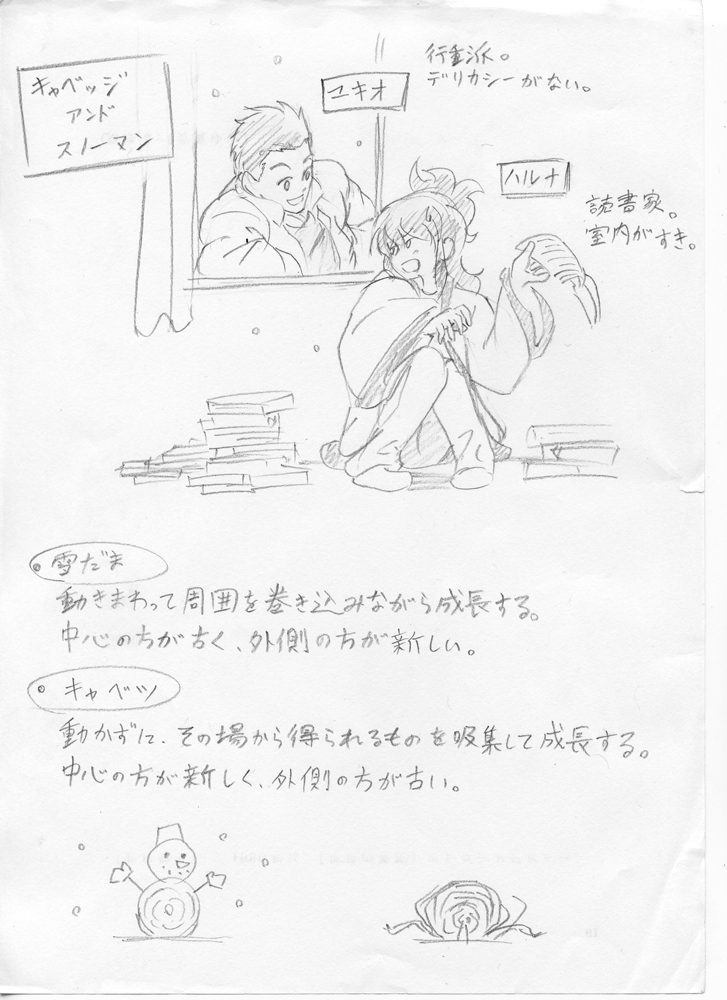 キャベッジ
アンド
スノーマン
ユキオ
行動派。
デリカシーがない。
ハルナ
読書家。
室内がすき。
・雪だま
動きまわって周囲を巻き込みながら成長する。
中心の方が古く、外側の方が新しい。
・キャベツ
動かずに、その場から得られるものを吸集して成長する。
中心の方が新しく、外側の方が古い。